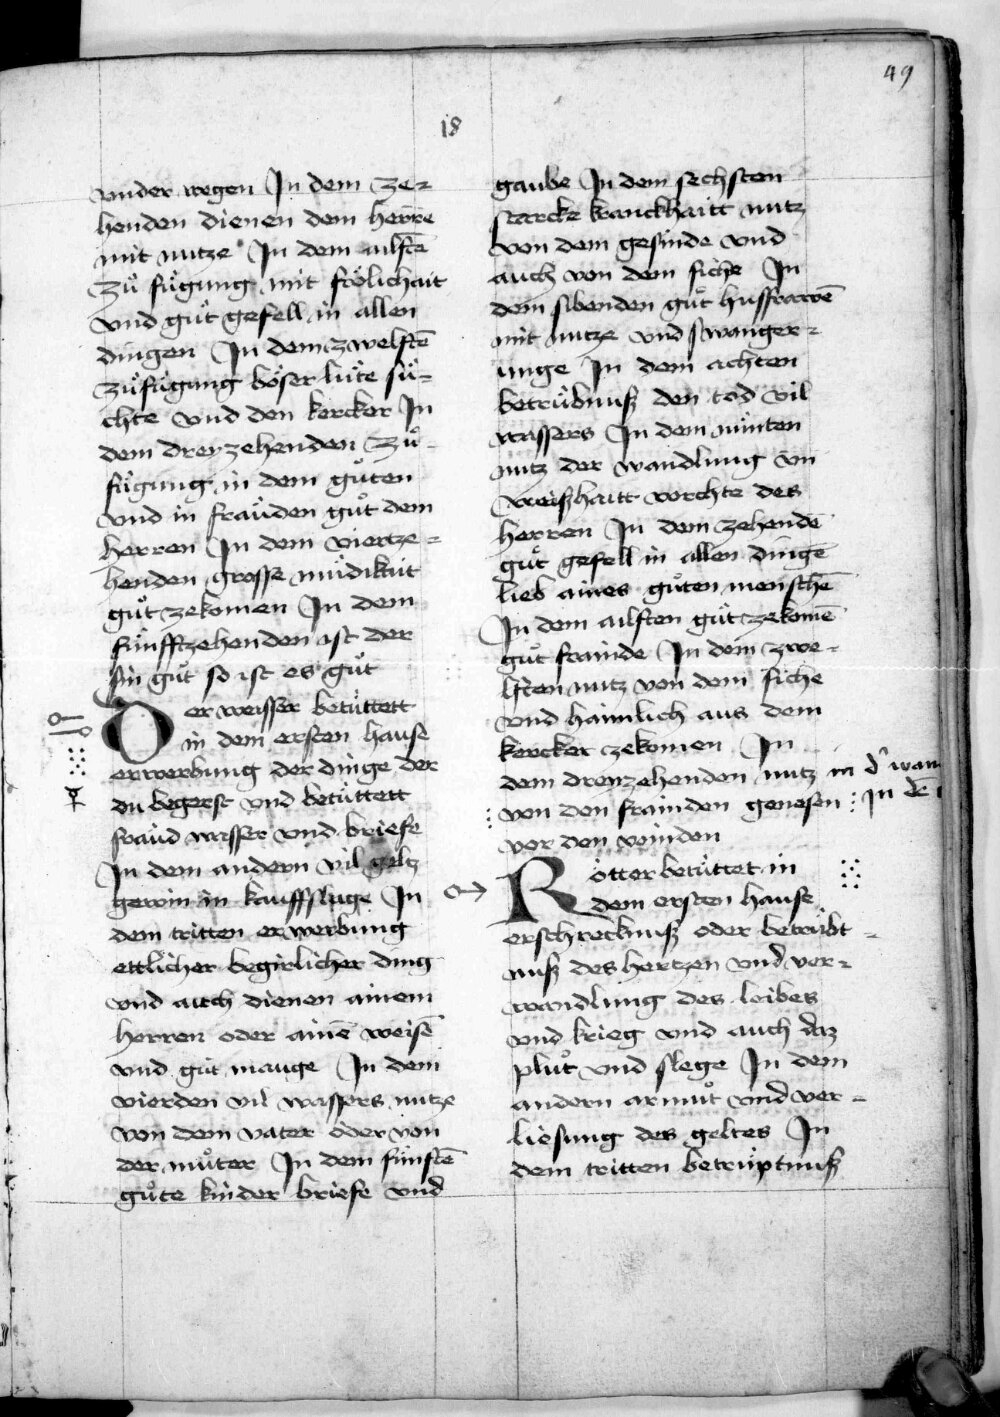 49
18
vnder wegen In dem ze-
henden dienen dem herre
mit nutze In dem ailftē
zuͦ fuͤgung mit froͤlichait
vnd guͦt gefell in allen
dingen In dem zwelftē
zuͦfuͤgung boͤser luͤte suͤ-
chte vnd den kercker In
dem dreyzehenden zuͦ-
fuͤgung in dem guͦten
vnd in fraͤuden guͦt dem
herren In dem viertze-
henden grosse muͤdikait
guͦt zekomen In dem
fuͤnfftzehenden ist der
sin guͦt so ist es guͦt
Der weisser betuͤttett
in dem ersten hause
erwerbung der dinge der
du begerst vnd betuͤttett
fraͤud wasser vnd briefe
In dem andern vil geltz
gewin in kauffslage In
dem tritten erwerbung
ettlicher begirlicher ding
vnd auch dienen ainem
herren oder ainē weisē
vnd guͦt mauge In dem
vierden vil wassers nutze
von dem vater oder von
der muͦter In dem fuͤnftē
guͦte kinder briefe vnd
gaube In dem sechsten
starcke kranckhaitt nutz
von dem gesinde vnd
auch von dem fiche In
dem sibenden guͦt husfrawē
mit nutze vnd swanger-
unge In dem achten
betruͤbnusz den tod vil
wassers In dem nuͤnten
nutz der wandlung vn̄
weiszhaitt vorchte des
herren In dem zehendē
guͦt gefell in allen dingē
lieb aines guͦten menschē
In dem ailften guͦt zekomē
guͦt frainde In dem zwe-
lften nutz von dem fiche
vnd haimlich aus dem
kercker zekomen In
dem dreyzehenden nutz in d' wan
von den frainden genesen In dē
vor den veinden
Rotter betuͤttet in
dem ersten hause
erschrecknusz oder betruͤbt-
nusz des hertzen vnd ver-
wandlung des leibes
vnd krieg vnd auch daz
pluͦt vnd slege In dem
andern armuͦt vnd ver-
liesung des geltes In
dem tritten betruͤptnusz